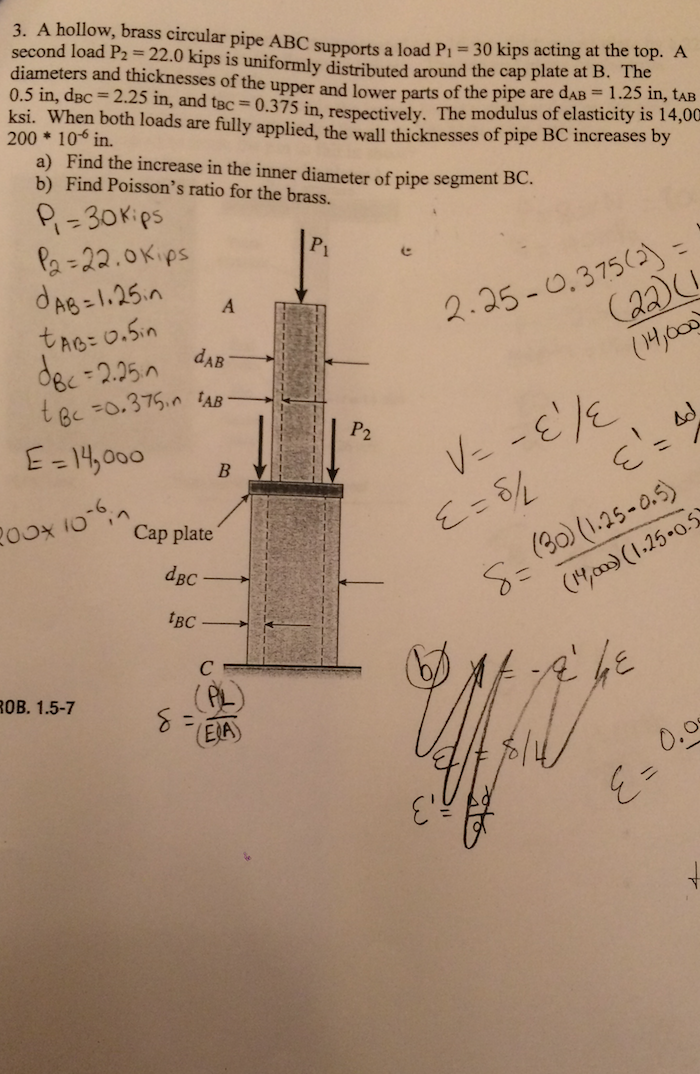 3. A hollow, brass circular pipe ABC supports a load P₁ = 30 kips acting at the top. A
second load P₂ = 22.0 kips is uniformly distributed around the cap plate at B. The
diameters and thicknesses of the upper and lower parts of the pipe are dAB = 1.25 in, tAB
0.5 in, dBC = 2.25 in, and tBC = 0.375 in, respectively. The modulus of elasticity is 14,00
ksi. When both loads are fully applied, the wall thicknesses of pipe BC increases by
200 * 10⁻⁶ in.
a) Find the increase in the inner diameter of pipe segment BC.
b) Find Poisson's ratio for the brass.
P₁ = 30 Kips
P₂ = 22.0 Kips
dAB = 1.25in
tAB = 0.5in
dBC = 2.25in
tBC = 0.375in
E = 14,000
200x 10⁻⁶in
P₁
A
dAB
tAB
P₂
B
Cap plate
dBC
tBC
C
ROB. 1.5-7
δ = (PL)
(E)(A)
2.25 - 0.375(2) =
(22)(
(14,000)
V = - ε'/ε
ε' = Δd/
ε = δ/L
δ = (30)(1.25-0.5)
(14,000)(1.25-0.5)
(b)
- ε'/ε
ε = δ/L
ε' = Δd
d
ε = 0.0